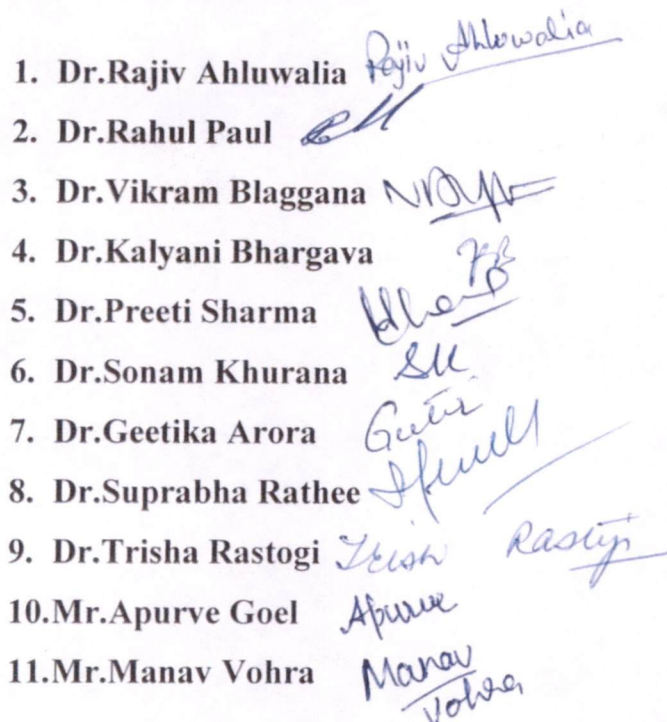 1. Dr.Rajiv Ahluwalia Rajiv Ahluwalia
2. Dr.Rahul Paul
3. Dr.Vikram Blaggana
4. Dr.Kalyani Bhargava KB
5. Dr.Preeti Sharma
6. Dr.Sonam Khurana SK
7. Dr.Geetika Arora
8. Dr.Suprabha Rathee
9. Dr.Trisha Rastogi
10.Mr.Apurve Goel Apurve
11.Mr.Manav Vohra Manav
Vohra